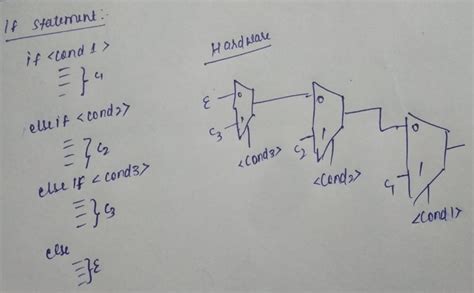 If statement:-
if <cond 1>
C1
else if <cond2>
C2
else if <cond3>
C3
else
E
Hardware
E
0
C3
1
<cond3>
0
C2
1
<cond2>
0
C1
1
<cond1>